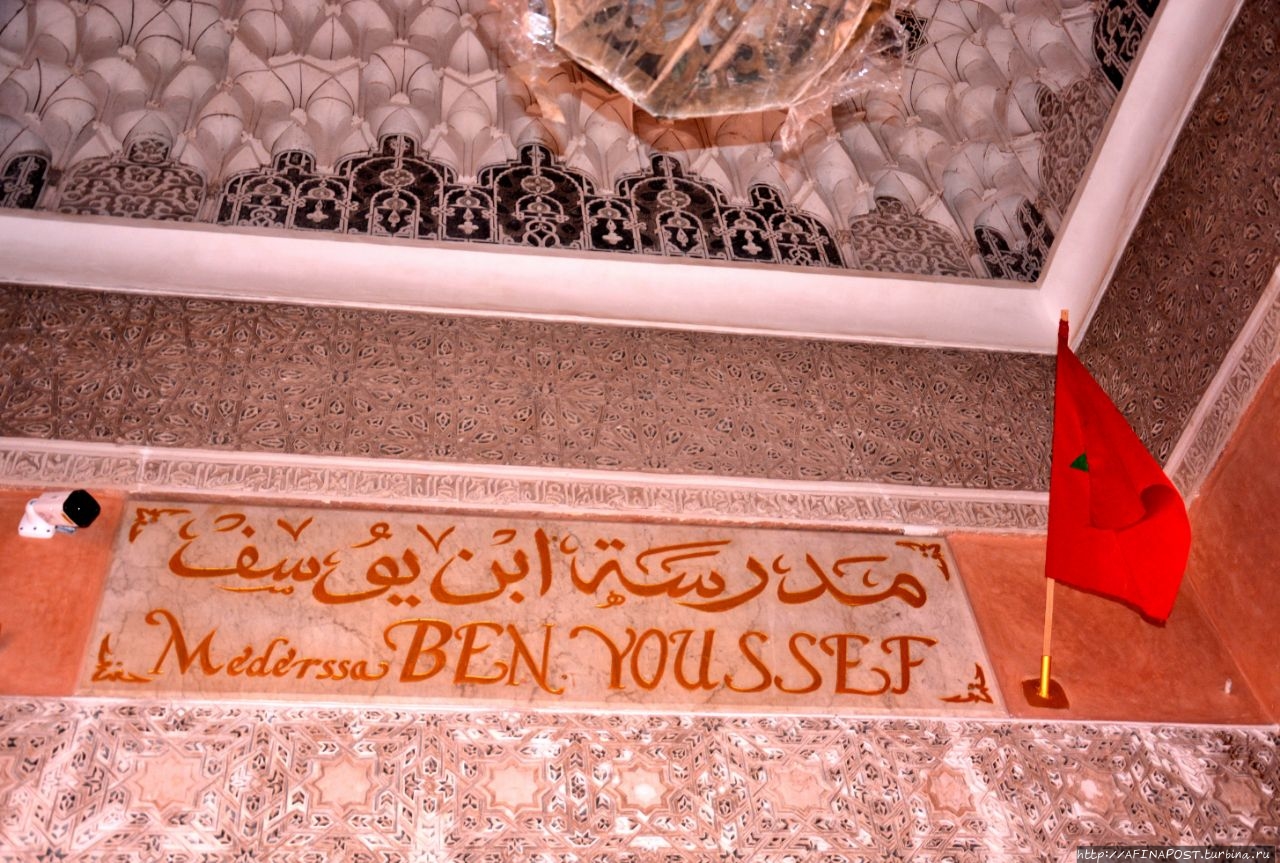 مدرسة ابن يوسف
Mederssa BEN YOUSSEF
http://AFINAPOST.turbina.ru